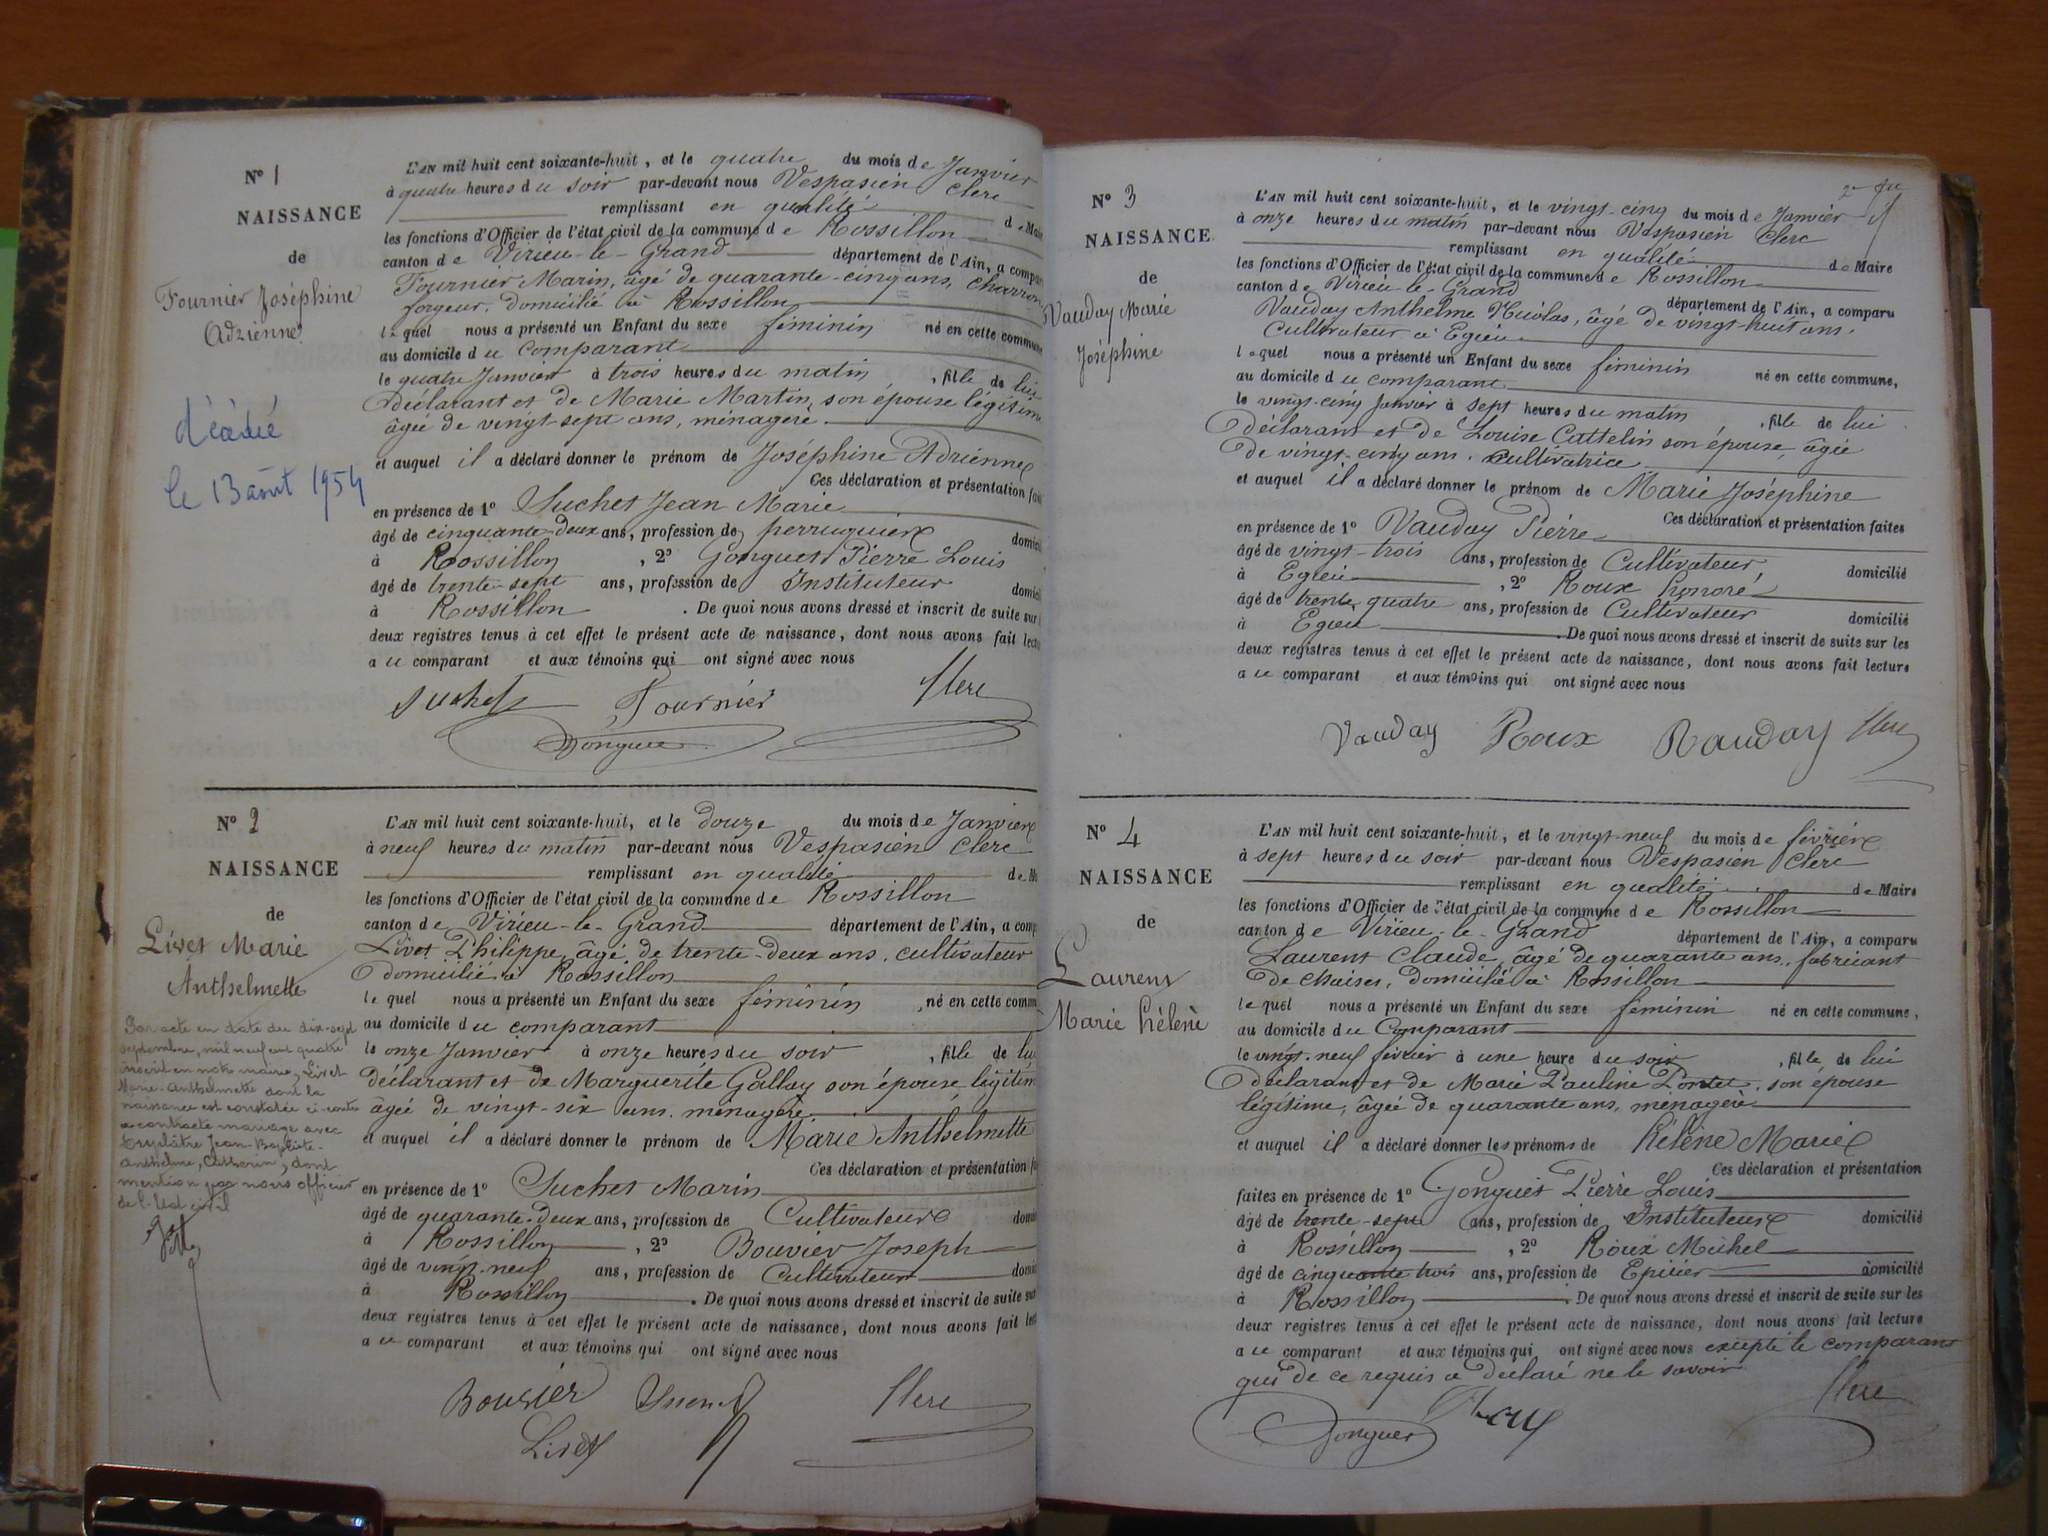 N° 1
NAISSANCE
de
Fournier Joséphine
Adrienne
décédé
le 13 août 1954
L'AN mil huit cent soixante-huit, et le quatre du mois de Janvier
à quatre heures du soir par-devant nous Vespasien Clerc
remplissant en qualité de Mai
les fonctions d'Officier de l'état civil de la commune de Rossillon
canton de Virieu-le-Grand département de l'Ain, a compa
Fournier Marin, âgé de quarante-cinq ans, charron
forgeur, domicilié à Rossillon
lequel nous a présenté un Enfant du sexe féminin né en cette commune
au domicile du comparant
le quatre Janvier à trois heures du matin, fille de lui
déclarant et de Marie Martin, son épouse légitime
âgée de vingt-sept ans, ménagère
et auquel il a déclaré donner le prénom de Joséphine Adrienne
Ces déclaration et présentation fai
en présence de 1° Suchet Jean Marie
âgé de cinquante-deux ans, profession de perruquier domici
à Rossillon, 2° Gonguet Pierre Louis
âgé de trente-sept ans, profession de Instituteur domici
à Rossillon. De quoi nous avons dressé et inscrit de suite sur
deux registres tenus à cet effet le présent acte de naissance, dont nous avons fait lectu
au comparant et aux témoins qui ont signé avec nous
Suchet Fournier Clerc
Gonguet
N° 2
NAISSANCE
de
Livet Marie
Anthelmette
Par acte en date du dix-sept
septembre, mil neuf cent quatre
inscrit en notre mairie, Livet
Marie-Anthelmette dont la
naissance est constatée ci-contre
a contracté mariage avec
Jean-Baptiste-
Anthelme, Catherin, dont
mention par nous officier
de l'Etat civil
L'AN mil huit cent soixante-huit, et le douze du mois de Janvier
à neuf heures du matin par-devant nous Vespasien Clerc
remplissant en qualité de M
les fonctions d'Officier de l'état civil de la commune de Rossillon
canton de Virieu-le-Grand département de l'Ain, a comp
Livet Philippe, âgé de trente-deux ans, cultivateur
domicilié à Rossillon
lequel nous a présenté un Enfant du sexe féminin, né en cette comm
au domicile du comparant
le onze Janvier à onze heures du soir, fille de lui
déclarant et de Marguerite Gallay son épouse légitim
âgée de vingt-six ans, ménagère
et auquel il a déclaré donner le prénom de Marie Anthelmette
Ces déclaration et présentation fa
en présence de 1° Suchet Marin
âgé de quarante-deux ans, profession de Cultivateur domi
à Rossillon, 2° Bouvier Joseph
âgé de vingt-neuf ans, profession de Cultivateur domi
à Rossillon. De quoi nous avons dressé et inscrit de suite sur
deux registres tenus à cet effet le présent acte de naissance, dont nous avons fait lec
au comparant et aux témoins qui ont signé avec nous
Bouvier Clerc
Livet
N° 3
NAISSANCE
de
Vauday Marie
Joséphine
L'AN mil huit cent soixante-huit, et le vingt-cinq du mois de Janvier
à onze heures du matin par-devant nous Vespasien Clerc
remplissant en qualité de Maire
les fonctions d'Officier de l'état civil de la commune de Rossillon
canton de Virieu-le-Grand département de l'Ain, a comparu
Vauday Anthelme Nicolas, âgé de vingt-huit ans,
Cultivateur à Egieu
lequel nous a présenté un Enfant du sexe féminin né en cette commune,
au domicile du comparant
le vingt-cinq Janvier à sept heures du matin, fille de lui
déclarant et de Louise Cattelin son épouse, âgée
de vingt-cinq ans, cultivatrice
et auquel il a déclaré donner le prénom de Marie Joséphine
Ces déclaration et présentation faites
en présence de 1° Vauday Pierre
âgé de vingt-trois ans, profession de Cultivateur domicilié
à Egieu, 2° Roux Honoré
âgé de trente-quatre ans, profession de Cultivateur domicilié
à Egieu. De quoi nous avons dressé et inscrit de suite sur les
deux registres tenus à cet effet le présent acte de naissance, dont nous avons fait lecture
au comparant et aux témoins qui ont signé avec nous
Vauday Roux Vauday Clerc
N° 4
NAISSANCE
de
Laurent
Marie Hélène
L'AN mil huit cent soixante-huit, et le vingt-neuf du mois de février
à sept heures du soir par-devant nous Vespasien Clerc
remplissant en qualité de Maire
les fonctions d'Officier de l'état civil de la commune de Rossillon
canton de Virieu-le-Grand département de l'Ain, a comparu
Laurent Claude, âgé de quarante ans, fabricant
de chaises, domicilié à Rossillon
lequel nous a présenté un Enfant du sexe féminin né en cette commune,
au domicile du Comparant
le vingt-neuf février à une heure du soir, fille de lui
déclarant et de Marie Pauline Pontet, son épouse
légitime, âgée de quarante ans, ménagère
et auquel il a déclaré donner les prénoms de Hélène Marie
Ces déclaration et présentation
faites en présence de 1° Gonguet Pierre Louis
âgé de trente-sept ans, profession de Instituteur domicilié
à Rossillon, 2° Roux Michel
âgé de cinquante trois ans, profession de Epicier domicilié
à Rossillon. De quoi nous avons dressé et inscrit de suite sur les
deux registres tenus à cet effet le présent acte de naissance, dont nous avons fait lecture
au comparant et aux témoins qui ont signé avec nous excepté le comparant
qui de ce requis a déclaré ne le savoir
Gonguet Roux Clerc